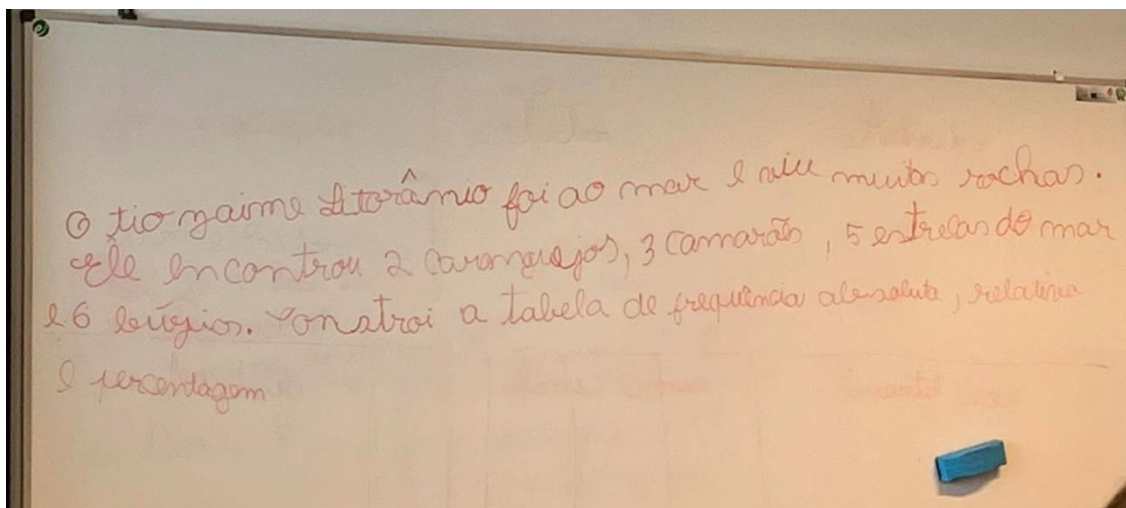 O tio Jaime Litorâmio foi ao mar e viu muitas rochas.
Ele encontrou 2 caranguejos, 3 camarão, 5 estrelas do mar
e 6 búzios. Constroi a tabela de frequência absoluta, relativa
e percentagem